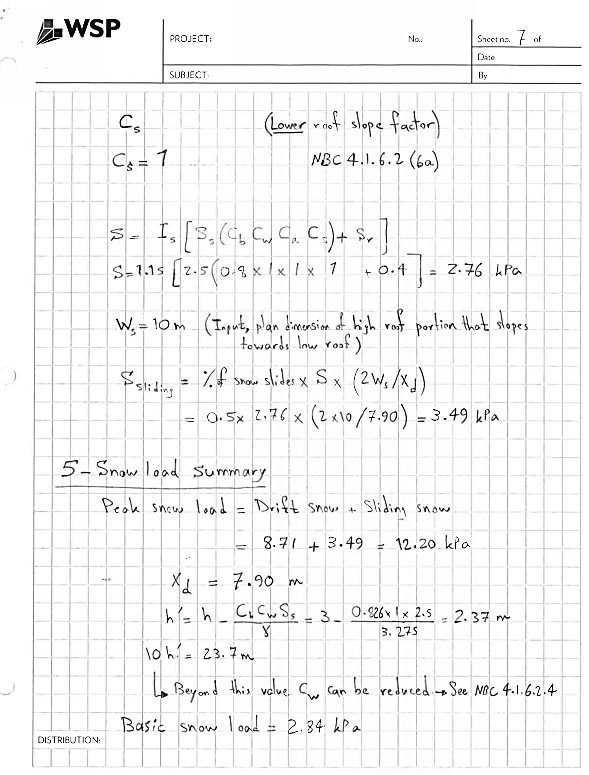 WSP
PROJECT:
No.:
Sheet no. 7 of
Date
SUBJECT:
By
Cs (Lower roof slope factor)
Cs = 1 NBC 4.1.6.2 (6a)
S = Is [Ss (Cb Cw Ca Cs) + Sr]
S = 1.15 [2.5 (0.8 x 1 x 1 x 1 + 0.4] = 2.76 kPa
Ws = 10 m (Input, plan dimension of high roof portion that slopes
towards low roof)
Ssliding = % of snow slides x S x (2Ws/xd)
= 0.5 x 2.76 x (2 x 10 / 7.90) = 3.49 kPa
5 - Snow load summary
Peak snow load = Drift snow + Sliding snow
= 8.71 + 3.49 = 12.20 kPa
Xd = 7.90 m
h' = h - CbCwSs/γ = 3 - 0.826 x 1 x 2.5/3.275 = 2.37 m
10 h' = 23.7 m
↳ Beyond this value Cw can be reduced → See NBC 4.1.6.2.4
Basic snow load = 2.84 kPa
DISTRIBUTION: